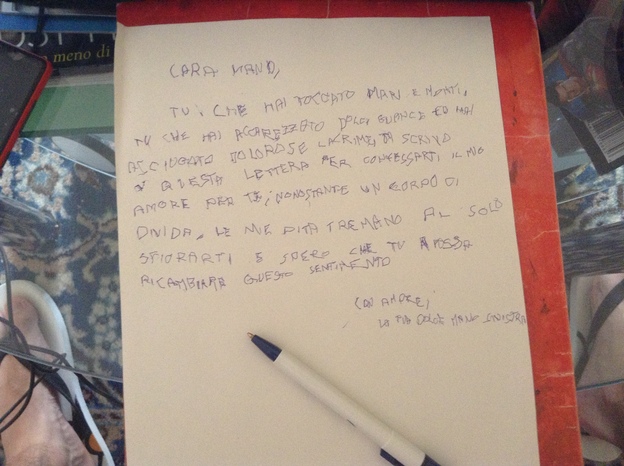 meno di
CARA MANO,
TU, CHE HAI TOCCATO MARI E MONTI,
TU CHE HAI ACCAREZZATO DOLCI GUANCE ED HAI
ASCIUGATO DOLOROSE LACRIME, TI SCRIVO
QUESTA LETTERA PER CONFESSARTI IL MIO
AMORE PER TE; NONOSTANTE UN CORPO CI
DIVIDA, LE MIE DITA TREMANO AL SOLO
SFIORARTI E SPERO CHE TU POSSA
RICAMBIARE QUESTO SENTIMENTO
CON AMORE,
LA TUA DOLCE MANO SINISTRA